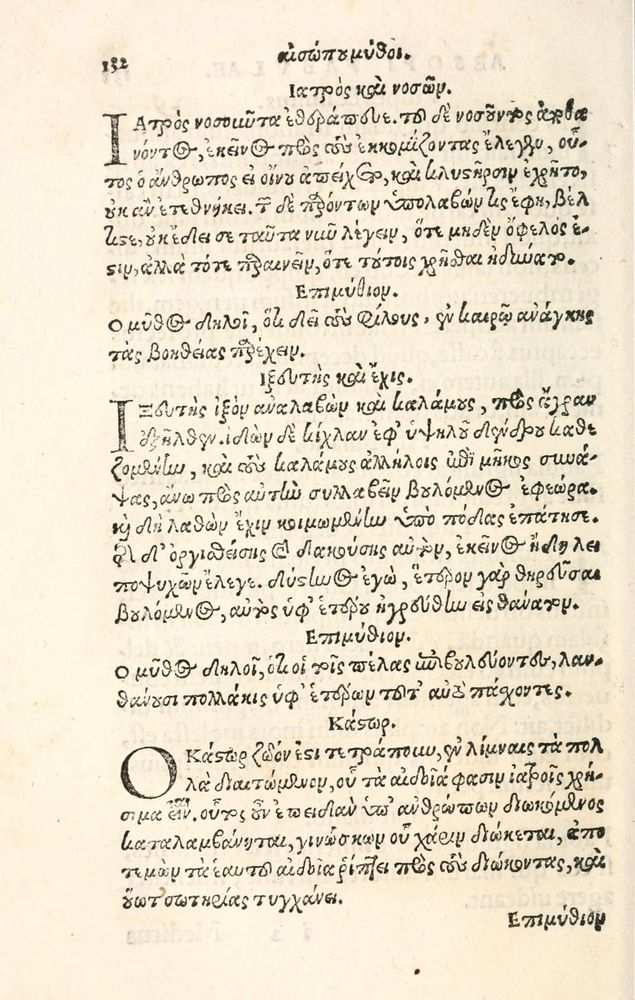 132 αἰσώπου μῦθοι.
Ἰατρὸς καὶ νοσῶν.
ΙΑτρὸς νοσοῦντα ἐθεράπευε. τοῦ δὲ νοσοῦντος ἀποθα
νόντος, ἐκεῖνος πρὸς τοὺς ἐκκομίζοντας ἔλεγεν, οὗ-
τος ὁ ἄνθρωπος εἰ οἴνου ἀπείχετο, καὶ κλυστῆρσιν ἐχρῆτο,
οὐκ ἂν ἐτεθνήκει. τῶν δὲ παρόντων ὑπολαβών τις ἔφη, βέλ
τιστε, οὐκ ἔδει σε ταῦτα νῦν λέγειν, ὅτε μηδὲν ὄφελός ἐ-
στιν, ἀλλὰ τότε παραινεῖν, ὅτε τούτοις χρῆσθαι ἠδύνατο.
Ἐπιμύθιον.
Ο μῦθος δηλοῖ, ὅτι δεῖ τοὺς φίλους, ἐν καιρῷ ἀνάγκης
τὰς βοηθείας παρέχειν.
Ἰξευτὴς καὶ ἔχις.
ΙΞευτὴς ἰξὸν ἀναλαβὼν καὶ καλάμους, πρὸς ἄγραν
ἐξῆλθεν. ἰδὼν δὲ κίχλαν ἐφ' ὑψηλοῦ δένδρου καθε
ζομένην, καὶ τοὺς καλάμους ἀλλήλοις ἐπὶ μῆκος συνά-
ψας, ἄνω πρὸς αὐτὴν συλλαβεῖν βουλόμενος ἐφεώρα.
καὶ δὴ λαθὼν ἔχιν κοιμωμένην ὑπὸ πόδας ἐπάτησε.
τῆς δ' ὀργισθείσης καὶ δακούσης αὐτὸν, ἐκεῖνος ἤδη λει
ποψυχῶν ἔλεγε. δύστηνος ἐγὼ, ἕτερον γὰρ θηρεῦσαι
βουλόμενος, αὐτὸς ὑφ' ἑτέρου ἠγρεύθην εἰς θάνατον.
Ἐπιμύθιον.
Ο μῦθος δηλοῖ, ὅτι οἱ τοῖς πέλας ἐπιβουλεύοντες, λαν-
θάνουσι πολλάκις ὑφ' ἑτέρων τοῦτ' αὐτὸ πάσχοντες.
Κάστωρ.
Ο Κάστωρ ζῷόν ἐστι τετράπουν, ἐν λίμναις τὰ πολ
λὰ διαιτώμενον, οὗ τὰ αἰδοῖά φασιν ἰατροῖς χρή-
σιμα εἶναι. οὗτος οὖν ἐπειδὰν ὑπ' ἀνθρώπων διωκόμενος
καταλαμβάνηται, γινώσκων οὗ χάριν διώκεται, ἀπο
τεμὼν τὰ ἑαυτοῦ αἰδοῖα ῥίπτει πρὸς τοὺς διώκοντας, καὶ
οὕτω σωτηρίας τυγχάνει.
Ἐπιμύθιον